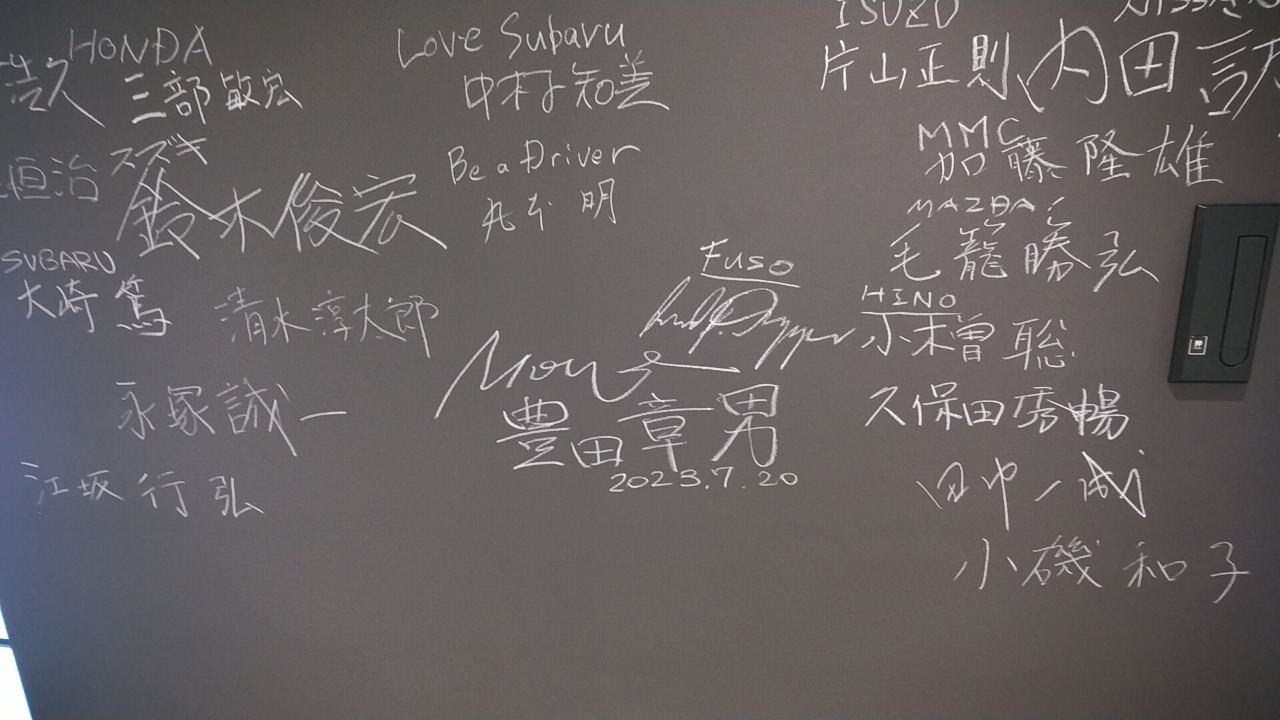 HONDA
三部敏宏
恒治
スズキ
鈴木俊宏
SUBARU
大崎 篤
清水淳太郎
永塚誠一
江坂行弘
Love Subaru
中村知美
Be a Driver
丸本 明
Fuso
豊田章男
2023.7.20
ISUZU
片山正則
NISSAN
内田
MMC
加藤隆雄
MAZDA
毛籠勝弘
HINO
小木曽 聡
久保田秀暢
田中一成
小磯和子